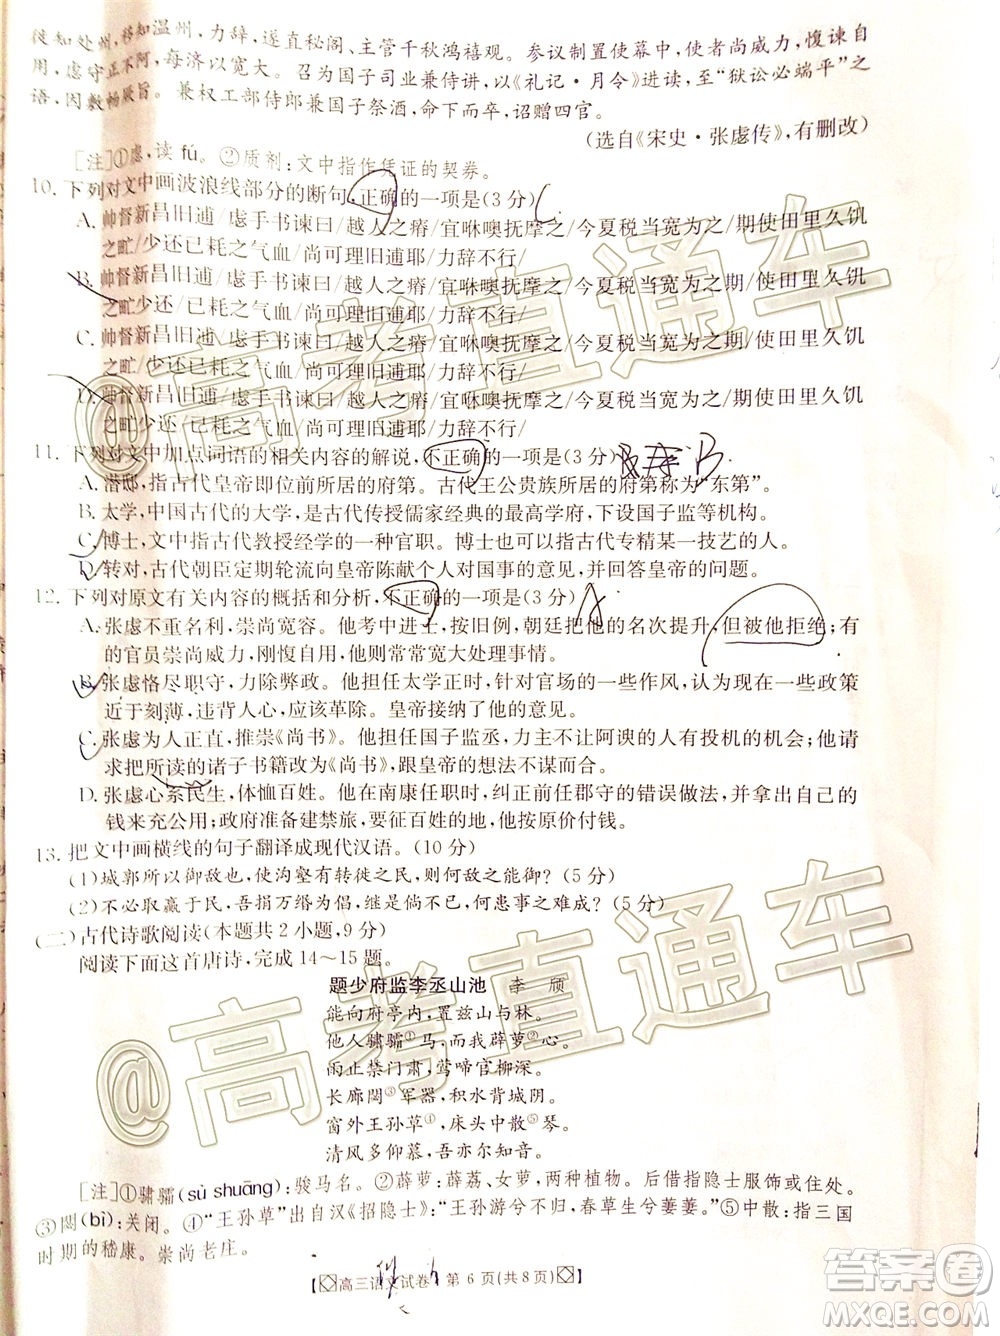 徙知处州,移知温州,力辞,遂直秘阁、主管千秋鸿禧观。参议制置使幕中,使者尚威力,愎谏自
用,虙守正不阿,每济以宽大。召为国子司业兼侍讲,以《礼记·月令》进读,至“狱讼必端平”之
语,因敷畅厥旨。兼权工部侍郎兼国子祭酒,命下而卒,诏赠四官。
(选自《宋史·张虙传》,有删改)
[注]①虙,读 fú。②质剂:文中指作凭证的契券。
10. 下列对文中画波浪线部分的断句,正确的一项是(3 分)
A. 帅督新昌旧逋/虙手书谏曰/越人之瘠/宜咻噢抚摩之/今夏税当宽为之/期使田里久饥
之甿/少还已耗之气血/尚可理旧逋耶/力辞不行/
B. 帅督新昌旧逋/虙手书谏曰/越人之瘠/宜咻噢抚摩之/今夏税当宽为之期/使田里久饥
之甿少还/已耗之气血/尚可理旧逋耶/力辞不行/
C. 帅督新昌旧逋/虙手书谏曰/越人之瘠/宜咻噢抚摩之/今夏税当宽为之期/使田里久饥
之甿/少还已耗之气血/尚可理旧逋耶/力辞不行/
D. 帅督新昌旧逋/虙手书谏曰/越人之瘠/宜咻噢抚摩之/今夏税当宽为之/期使田里久饥
之甿少还/已耗之气血/尚可理旧逋耶/力辞不行/
11. 下列对文中加点词语的相关内容的解说,不正确的一项是(3 分) B
A. 潜邸,指古代皇帝即位前所居的府第。古代王公贵族所居的府第称为“东第”。
B. 太学,中国古代的大学,是古代传授儒家经典的最高学府,下设国子监等机构。
C. 博士,文中指古代教授经学的一种官职。同时也指古代专精某一技艺的人。
D. 转对,古代朝臣定期轮流向皇帝陈献个人对国事的意见,并回答皇帝的问题。
12. 下列对原文有关内容的概括和分析,不正确的一项是(3 分) A
A. 张虙不重名利,崇尚宽容。他考中进士,按旧例,朝廷把他的名次提升,但被他拒绝;有
的官员崇尚威力,刚愎自用,他则常常宽大处理事情。
B. 张虙恪尽职守,力除弊政。他担任太学正时,针对官场的一些作风,认为现在一些政策
近于刻薄,违背人心,应该革除。皇帝接纳了他的意见。
C. 张虙为人正直,推崇《尚书》。他担任国子监丞,力主不让阿谀的人有投机的机会;他请
求把所读的诸子书籍改为《尚书》,跟皇帝的想法不谋而合。
D. 张虙心系民生,体恤百姓。他在南康任职时,纠正前任郡守的错误做法,并拿出自己的
钱来充公用;政府准备建禁旅,要征百姓的地,他按原价付钱。
13. 把文中画横线的句子翻译成现代汉语。(10 分)
(1)城郭所以御敌,使沟壑有转徙之民,则何敌之能御?(5 分)
(2)不必取赢于民,吾捐万缗为倡,何患事之难成?(5 分)
(二)古代诗歌阅读(本题共 2 小题,9 分)
阅读下面这首唐诗,完成 14～15 题。
题少府监李丞山池 李颀
能向府亭内,置兹山与林。
他人骕骦①马,而我薜萝②心。
雨止禁门肃,莺啼官柳深。
长廊閟③军器,积水背城阴。
窗外王孙草④,床头中散⑤琴。
清风多仰慕,吾亦尔知音。
[注]①骕骦(sù shuāng):骏马名。②薜萝:薜荔、女萝,两种植物。后借指隐士服饰或住处。
③閟(bì):关闭。④“王孙草”出自汉《招隐士》:“王孙游兮不归,春草生兮萋萋。”⑤中散:指三国
时期的嵇康。崇尚老庄。
【高三语文试卷 第 6 页(共 8 页)】
@高考直通车
@高考直通车
答案圈
MXQE.COM